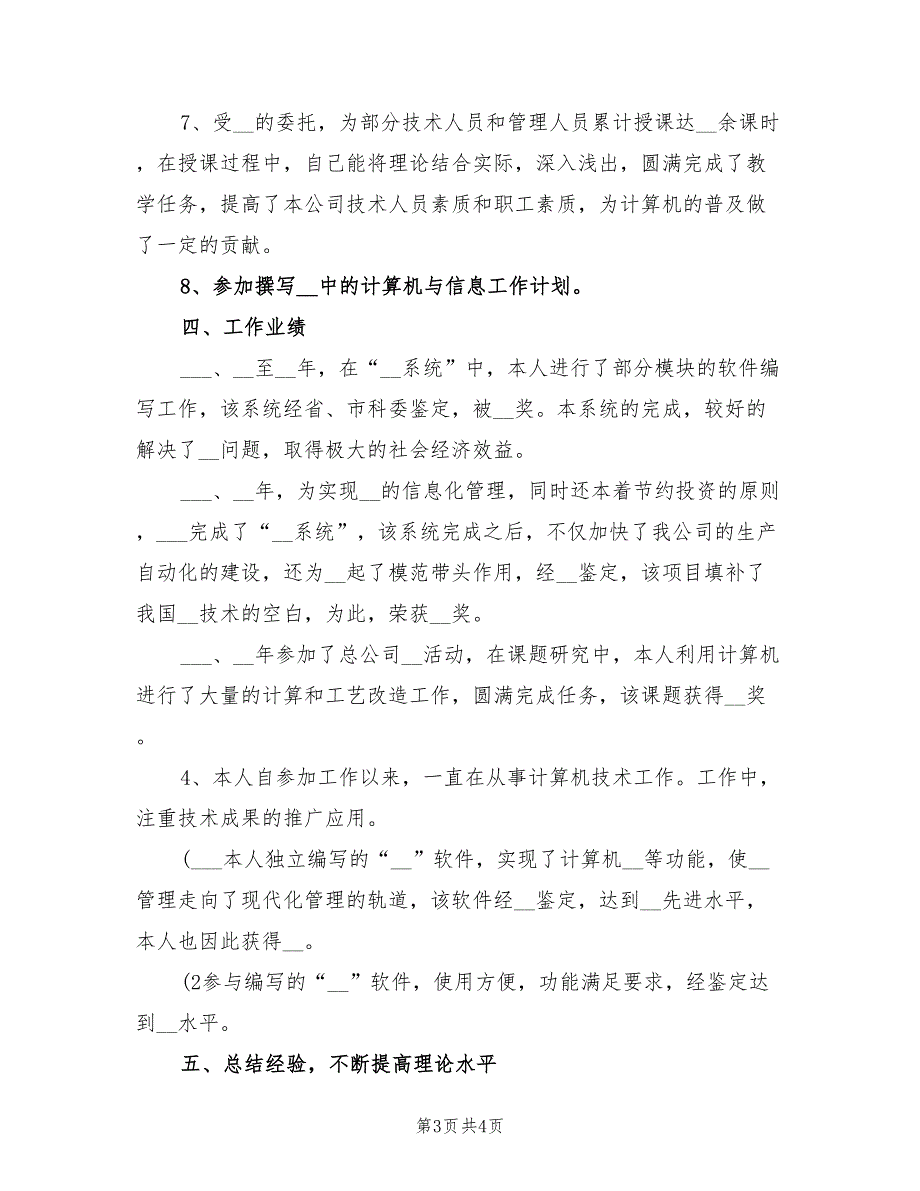 7、受__的委托，为部分技术人员和管理人员累计授课达__余课时
，在授课过程中，自己能将理论结合实际，深入浅出，圆满完成了教
学任务，提高了本公司技术人员素质和职工素质，为计算机的普及做
了一定的贡献。
8、参加撰写__中的计算机与信息工作计划。
四、工作业绩
___、__至__年，在“__系统”中，本人进行了部分模块的软件编
写工作，该系统经省、市科委鉴定，被__奖。本系统的完成，较好的
解决了__问题，取得极大的社会经济效益。
___、__年，为实现__的信息化管理，同时还本着节约投资的原则
，___完成了“__系统”，该系统完成之后，不仅加快了我公司的生产
自动化的建设，还为__起了模范带头作用，经__鉴定，该项目填补了
我国__技术的空白，为此，荣获__奖。
___、__年参加了总公司__活动，在课题研究中，本人利用计算机
进行了大量的计算和工艺改造工作，圆满完成任务，该课题获得__奖
。
4、本人自参加工作以来，一直在从事计算机技术工作。工作中，
注重技术成果的推广应用。
(___本人独立编写的“__”软件，实现了计算机__等功能，使__
管理走向了现代化管理的轨道，该软件经__鉴定，达到__先进水平，
本人也因此获得__。
(2参与编写的“__”软件，使用方便，功能满足要求，经鉴定达
到__水平。
五、总结经验，不断提高理论水平
第3页共4页